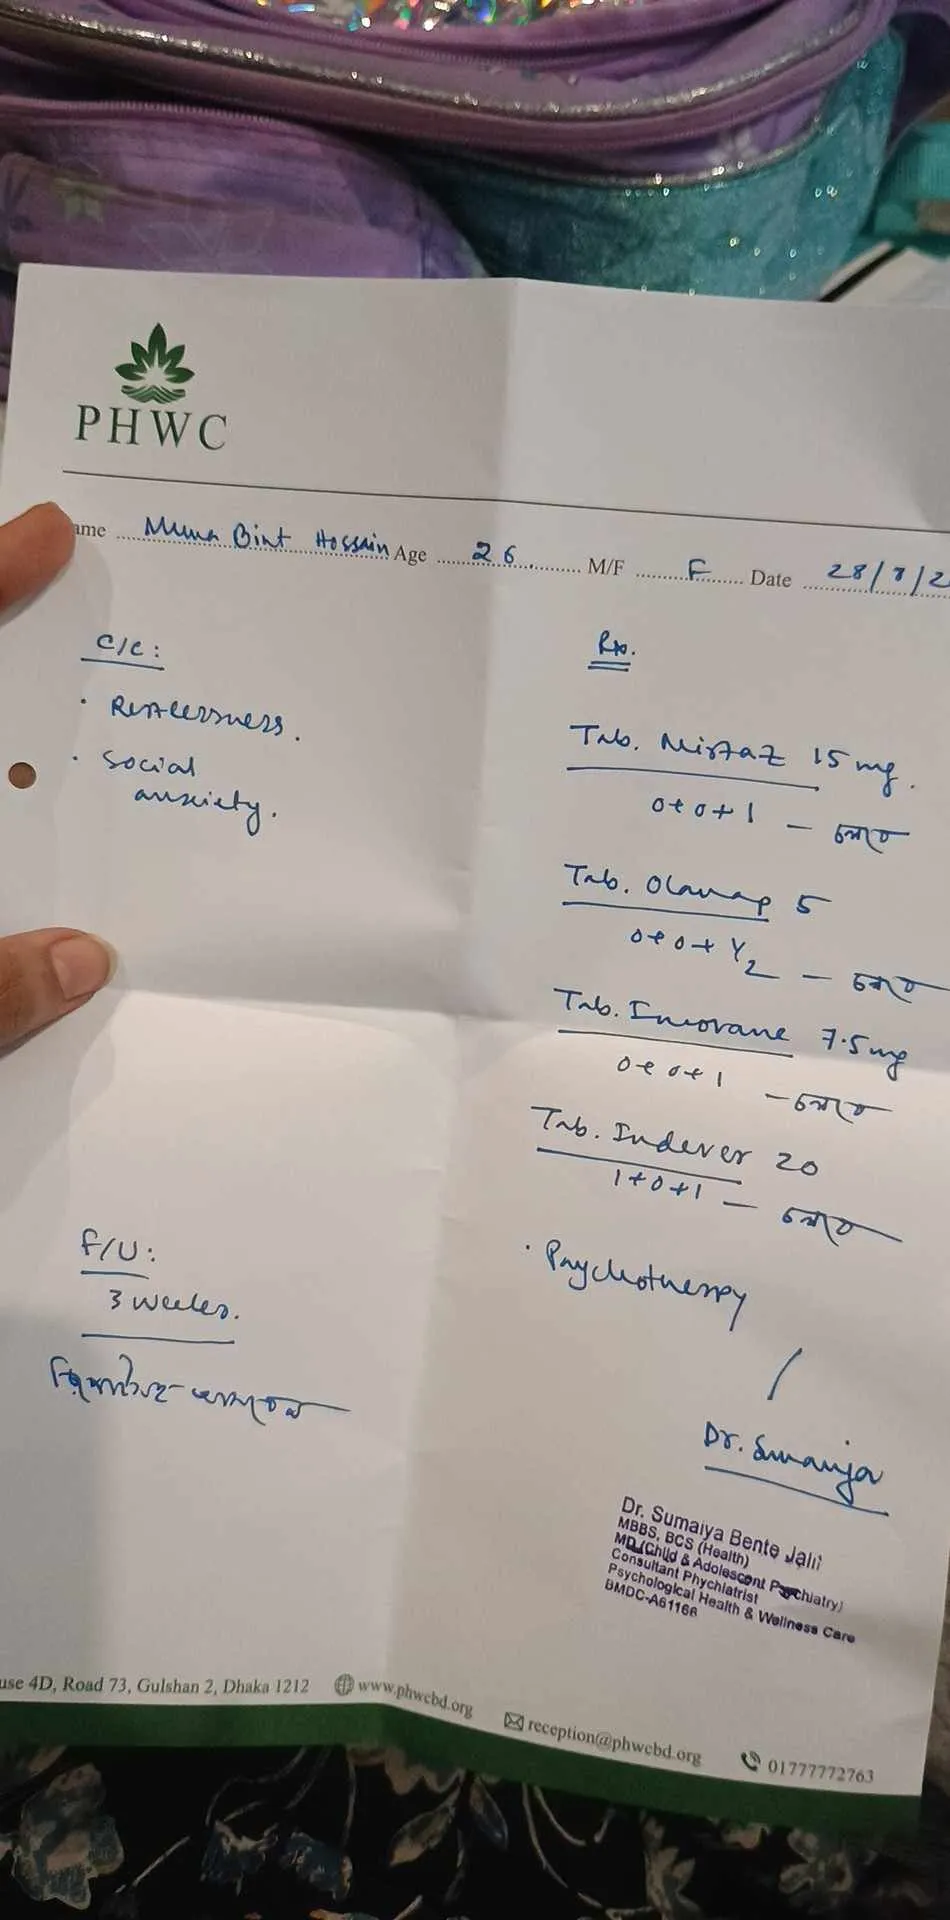 PHWC
ame Muna Bint Hossain Age 26 M/F F Date 28/7/2
C/C:
· Restlessness.
· Social
anxiety.
Rx.
Tab. Mirtaz 15 mg.
0+0+1 — চলবে
Tab. Olanap 5
0+0+1/2 — চলবে
Tab. Imovane 7.5 mg
0+0+1 — চলবে
Tab. Indever 20
1+0+1 — চলবে
· Psychotherapy
F/U:
3 weeks.
Dr. Sumaiya
Dr. Sumaiya Bente Jalil
MBBS, BCS (Health)
MD (Child & Adolescent Psychiatry)
Consultant Phychiatrist
Psychological Health & Wellness Care
BMDC-A61166
use 4D, Road 73, Gulshan 2, Dhaka 1212 www.phwcbd.org reception@phwcbd.org 01777772763